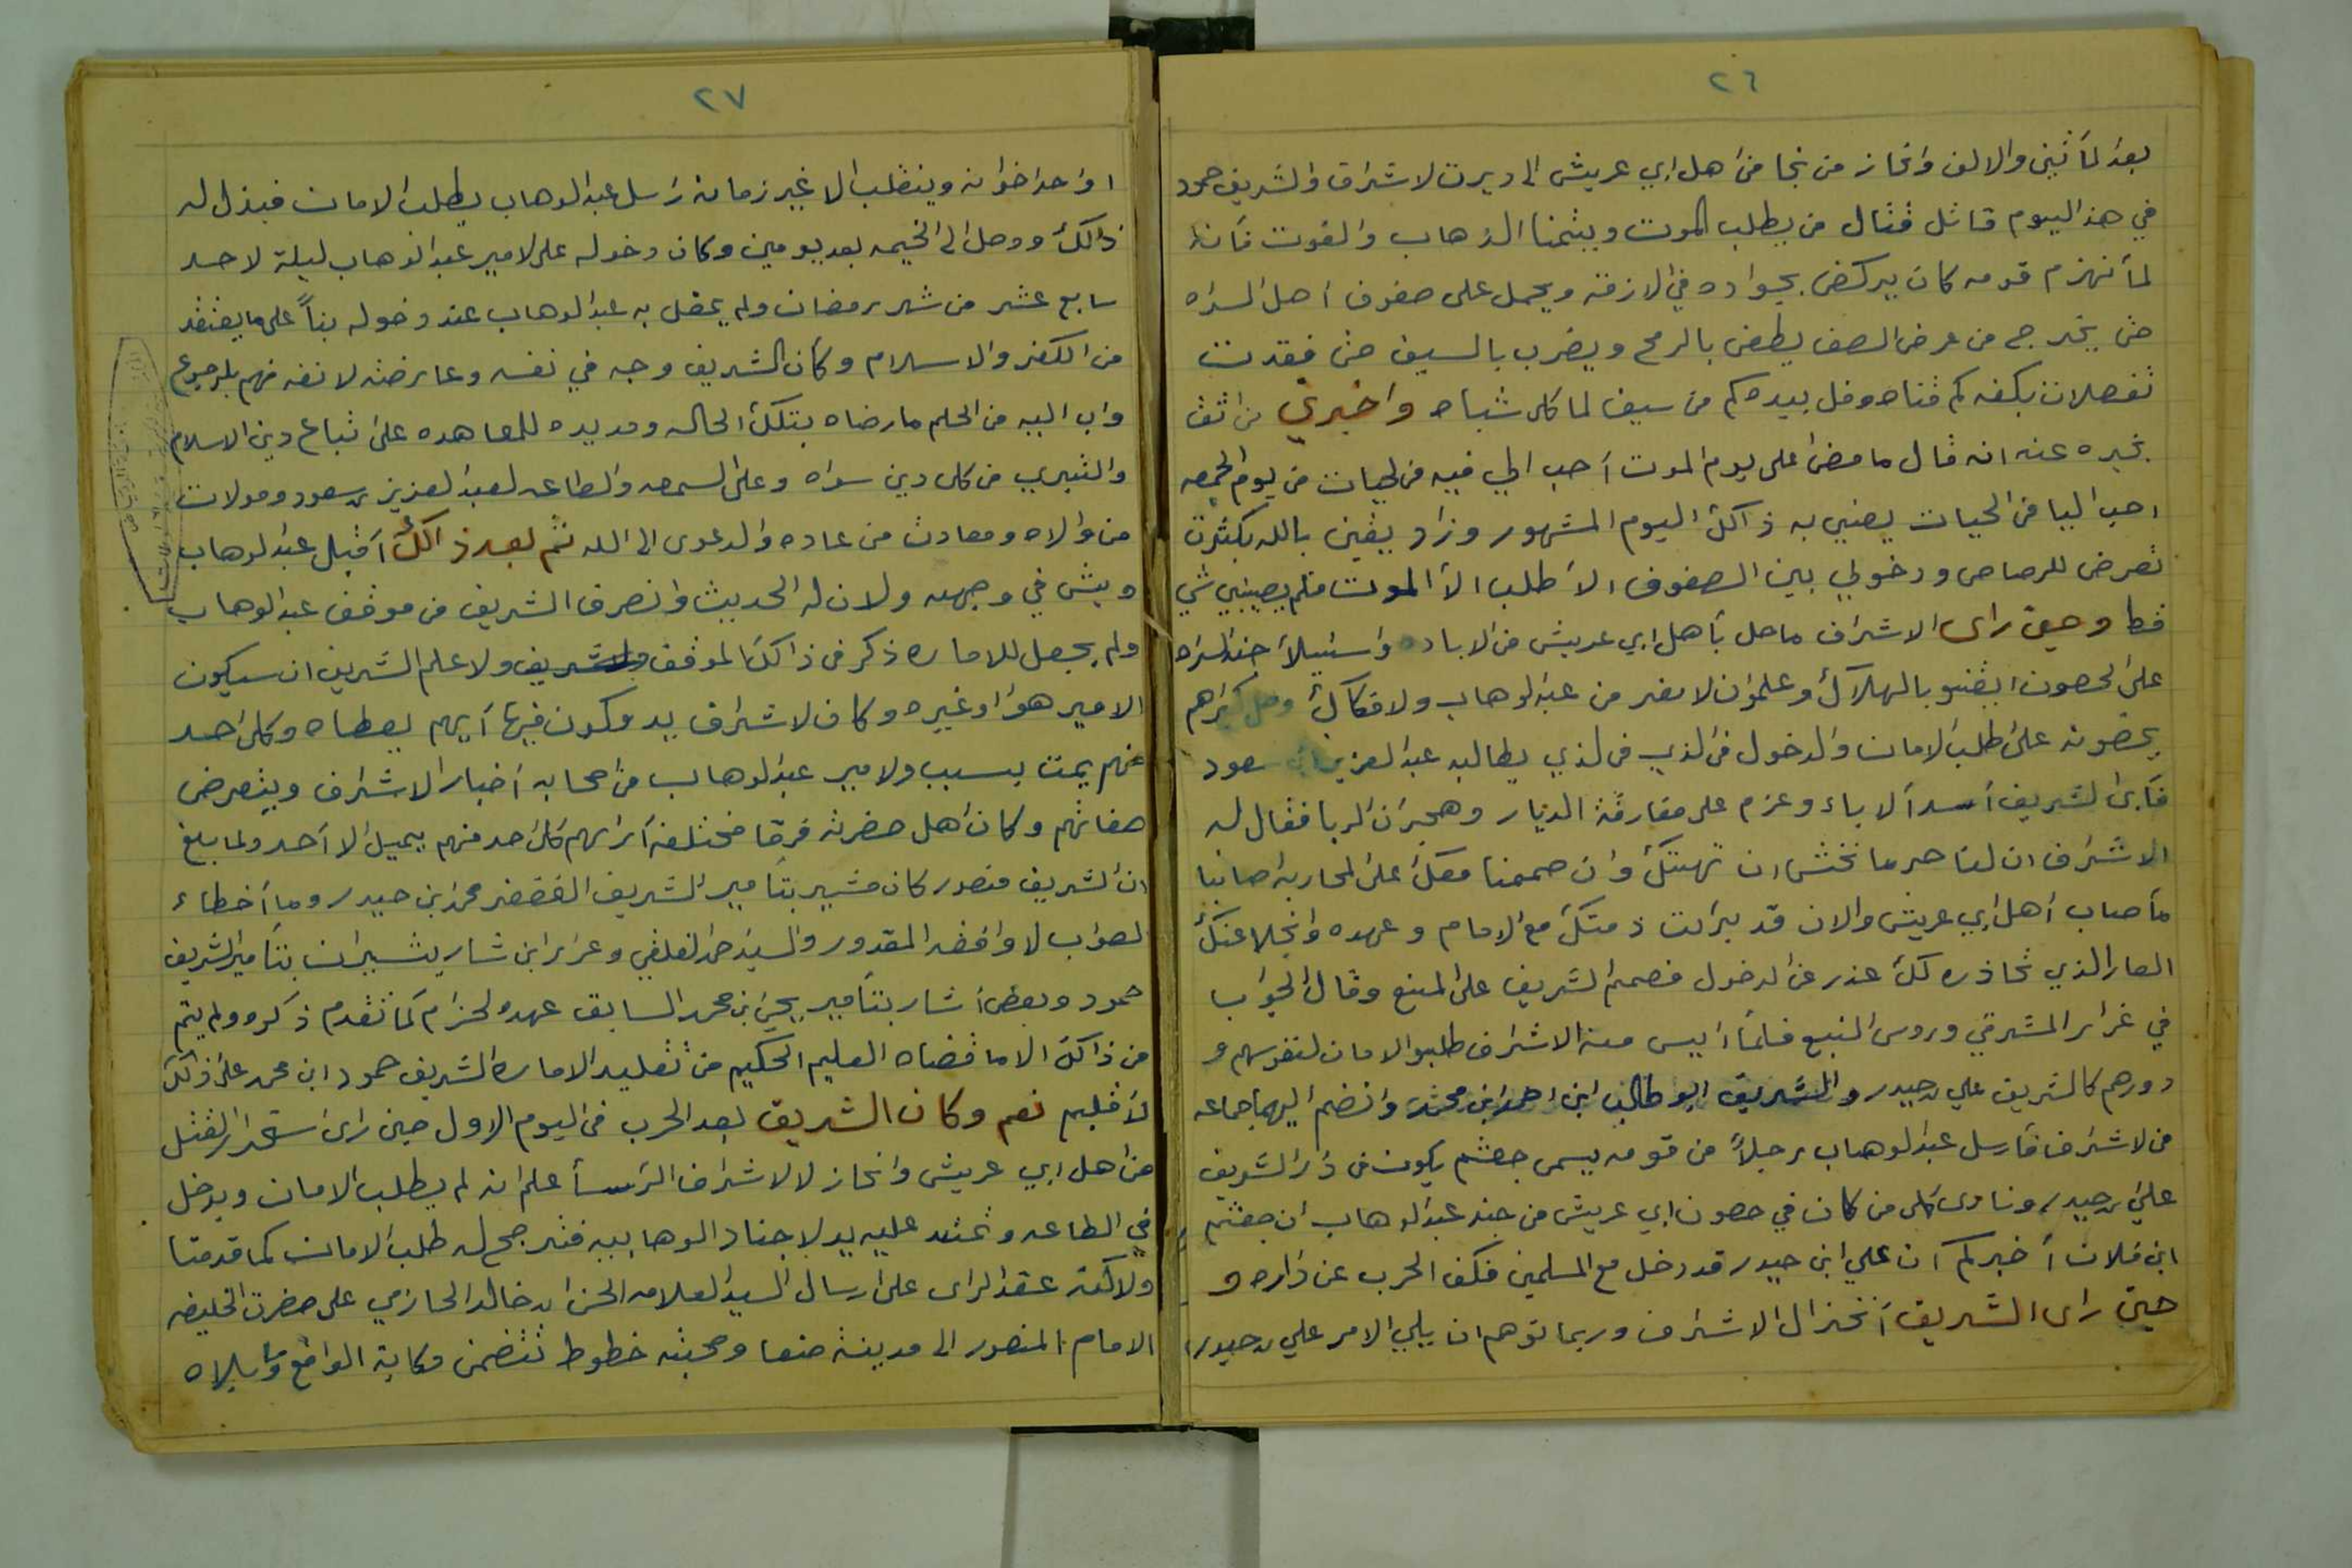 ٢٦
بعد لمأتين والالف وانحاز من نجا من اهل ابي عريش الى ديرت لاشراف والشريف حمود
في هذ اليوم قاتل قتال من يطلب الموت ويتمنا الذهاب والفوت فأنه
لمأ نهزم قومه كان يركض بجواده في الازقة ويحمل على صفوف اهل السراه
حتى يخرج من عرض الصف يطعن بالرمح ويضرب بالسيف حتى فقدت
تفصلات بكفه كم قناه وفل بيده كم من سيف لما كل شباه واخبرني من اثق
بخبره عنه انه قال ما مضى على يوم الموت أحب الي فيه من لحيات من يوم الجمعه
احب اليا من الحيات يعني به ذالك اليوم المشهور وزاد يقيني بالله بكثرت
تعرض للرصاص ودخولي بين الصفوف الأ طلب الأ الموت فلم يصيبني شي
قط وحين راى الاشراف ماحل بأهل ابي عريش من الاباده واستيلأ جند السراه
على الحصون ايقنو بالهلاك وعلمو ان لامفر من عبد الوهاب ولا فكاك وصل كبراهم
يحضونه على طلب الامان والدخول في الذي في لذي يطالبه عبد العزيز ابن سعود
فأبى الشريف أسد الاباء وعزم على مفارقة الديار وهجران الربا فقال له
الاشراف ان لنا حرما نخشى ان تهتك وان صممنا معك على المحاربه اصابنا
مأصاب أهل ابي عريش والان قد برأت ذمتك مع الإمام وعهده وانجلا عنك
العار الذي تحاذره لك عذر عن الدخول فصمم الشريف على المنع وقال الجواب
في غرار المشرقي وروس النبع فلما ايس منه الاشراف طلبو الامان لنفوسهم و
دورهم كالشريف علي بن حيدر والشريف ابو طالب ابن احمد ابن محمد وانضم اليهما جماعه
من لاشراف فأرسل عبد الوهاب رجلاً من قومه يسمى جعثم يكون في دار الشريف
علي بن حيدر ونادى كل من كان في حصون ابي عريش من جند عبد الوهاب ان جعثم
ابن فلان أخبركم أن علي ابن حيدر قد دخل مع المسلمين فكف الحرب عن داره و
حين راى الشريف أنخزال الاشراف وربما توهم ان يلي الامر علي بن حيدر
٢٧
او احد اخوانه وينقلب الا غير زمانه راسل عبد الوهاب يطلب الامان فبذل له
ذالك ووصل الى الخيمه بعد يومين وكان دخوله على لامير عبد الوهاب ليلة لاحد
سابع عشر من شهر رمضان ولم يحفل به عبد الوهاب عند دخوله بناً على ما يعتقد
من الكفر والاسلام وكان الشريف وجه في نفسه وعارضته لانفه فهم بلرجوع
واب اليه من الحلم مارضاه بتلك الحاله ومد يده للمعاهده على تباع دين الاسلام
والتبري من كل دين سواه وعلى السمعه والطاعه لعبد لعزيز بن سعود ومولات
من والاه ومعادت من عاده والدعوى الى الله ثم بعد ذالك أقبل عبد لوهاب
وبش في وجهه ولان له الحديث وانصرف الشريف من موقف عبد الوهاب
ولم يجعل للاماره ذكر في ذالك لموقف ولا علم الشريف ان سيكون
الامير هو او غيره وكان لاشراف يد مكون فيها أيهم يعطاه وكل احد
منهم يمت بسبب ولامير عبد لوهاب من اصحابه أخبار الاشراف ويتعرض
صفاتهم وكان اهل حضرته فرقا مختلفه أرائهم كل احد منهم يميل الا أحد ولما بلغ
ان الشريف منصور كان مشير بتأمير الشريف الغضنفر محمد ابن حيدر وما أخطاء
لصواب لا وافقه المقدور والسيد احمد لفلقي وعرار ابن شار يشيران بتأمير الشريف
حمود وبعض أشار بتأمير يحيى بن محمد السابق عهده لحزام كما تقدم ذكره ولم يتم
من ذالك الا ما قضاه العليم الحكيم من تقليد الاماره الشريف حمود ابن محمد على ذالك
لأقليم نعم وكان الشريف بعد الحرب في اليوم الاول حين راى ستحرار لقتل
من اهل ابي عريش وانحاز لا لاشراف الرسأ علم انه لم يطلب الامان ويدخل
في الطاعه وتمتد عليه يد لاجناد الوهابيه فترجح له طلب الامان كما قدمنا
ولاكنه عقد الراى على ارسال السيد لعلامه الحسن ابن خالد الحازمي على حضرت الخليفه
الامام المنصور الى مدينة صنعا وصحبته خطوط تتضمن حكاية الواقع وأبلاه